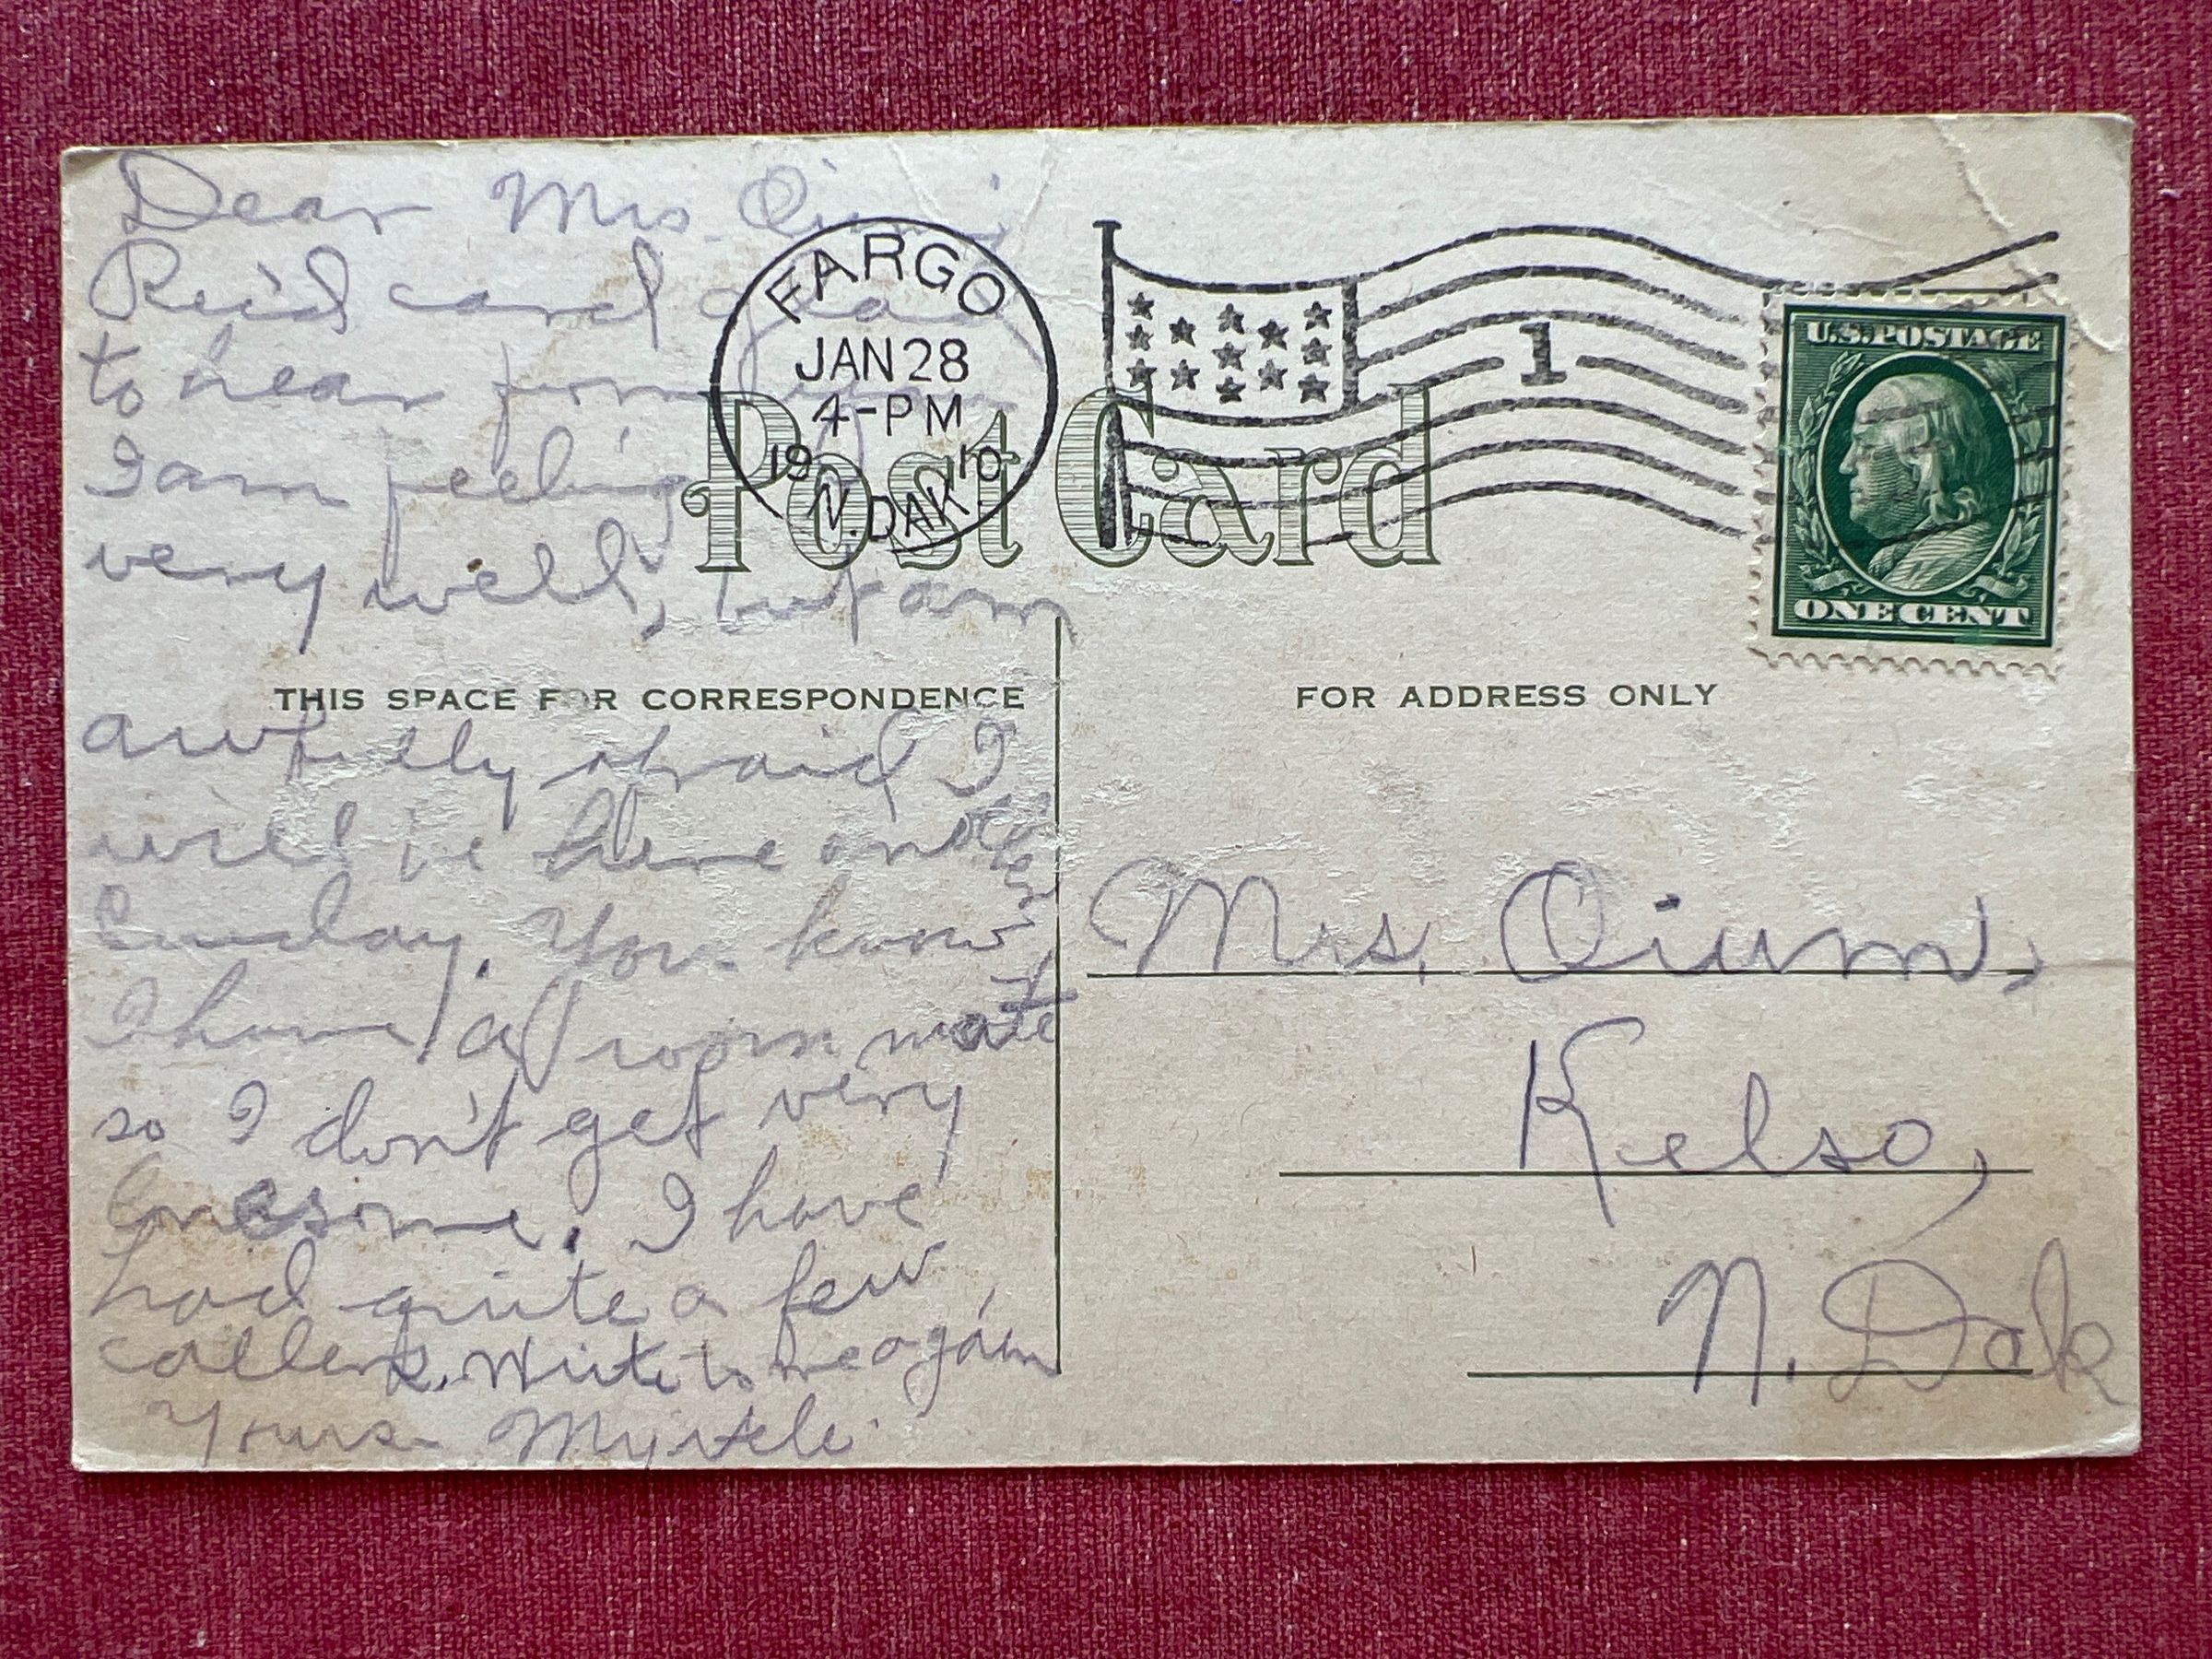 Dear Mrs. Oium,
Rec'd card glad
to hear from you
I am feeling
very well, but am
THIS SPACE FOR CORRESPONDENCE
awfully afraid I
will be here another
Sunday. You know
I have a room mate
so I don't get very
lonesome. I have
had quite a few
callers. Write to me again
Yours Myrtle.
FARGO
JAN 28
4-PM
19 10
N. DAK
1
Post Card
U.S. POSTAGE
ONE CENT
FOR ADDRESS ONLY
Mrs. Oium,
Kelso,
N. Dak